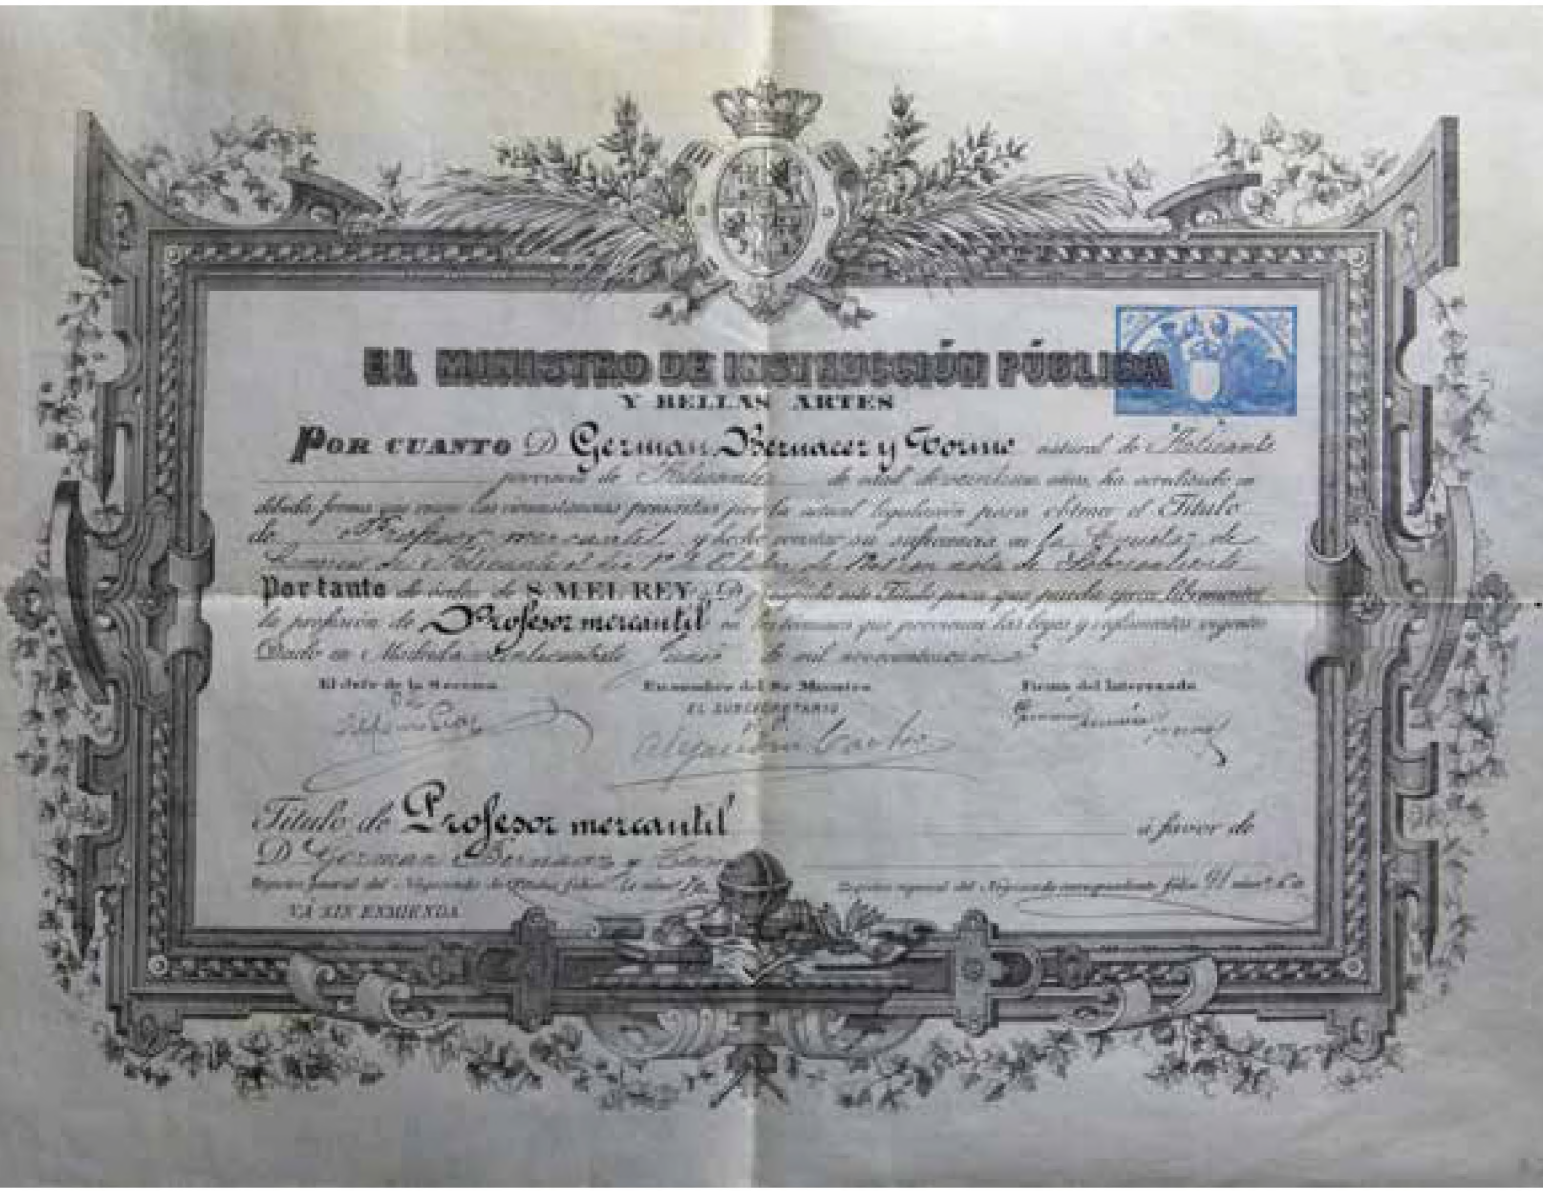 EL MINISTRO DE INSTRUCCIÓN PÚBLICA
Y BELLAS ARTES
POR CUANTO D. German Bernacer y Tormo natural de Alicante
provincia de Alicante de edad de años, ha acreditado en
debida forma que reune las circunstancias prescritas por la actual legislación para obtener el Título
de Profesor mercantil y hecho constar su suficiencia en la Escuela de
Comercio de Alicante el día 1º de Octubre de con nota de Sobresaliente
Por tanto de orden de S. M. EL REY q. D. g. expido este Título para que pueda ejercer libremente
la profesión de Profesor mercantil en los términos que previenen las leyes y reglamentos vigentes
Dado en Madrid a de mil novecientos
El Jefe de la Sección En nombre del Sr Ministro Firma del Interesado
EL SUBSECRETARIO
Título de Profesor mercantil á favor de
D. German Bernacer y Tormo
Registro general del Negociado de Títulos, folio Registro especial del Negociado correspondiente, folio 91
VÁ SIN ENMIENDA